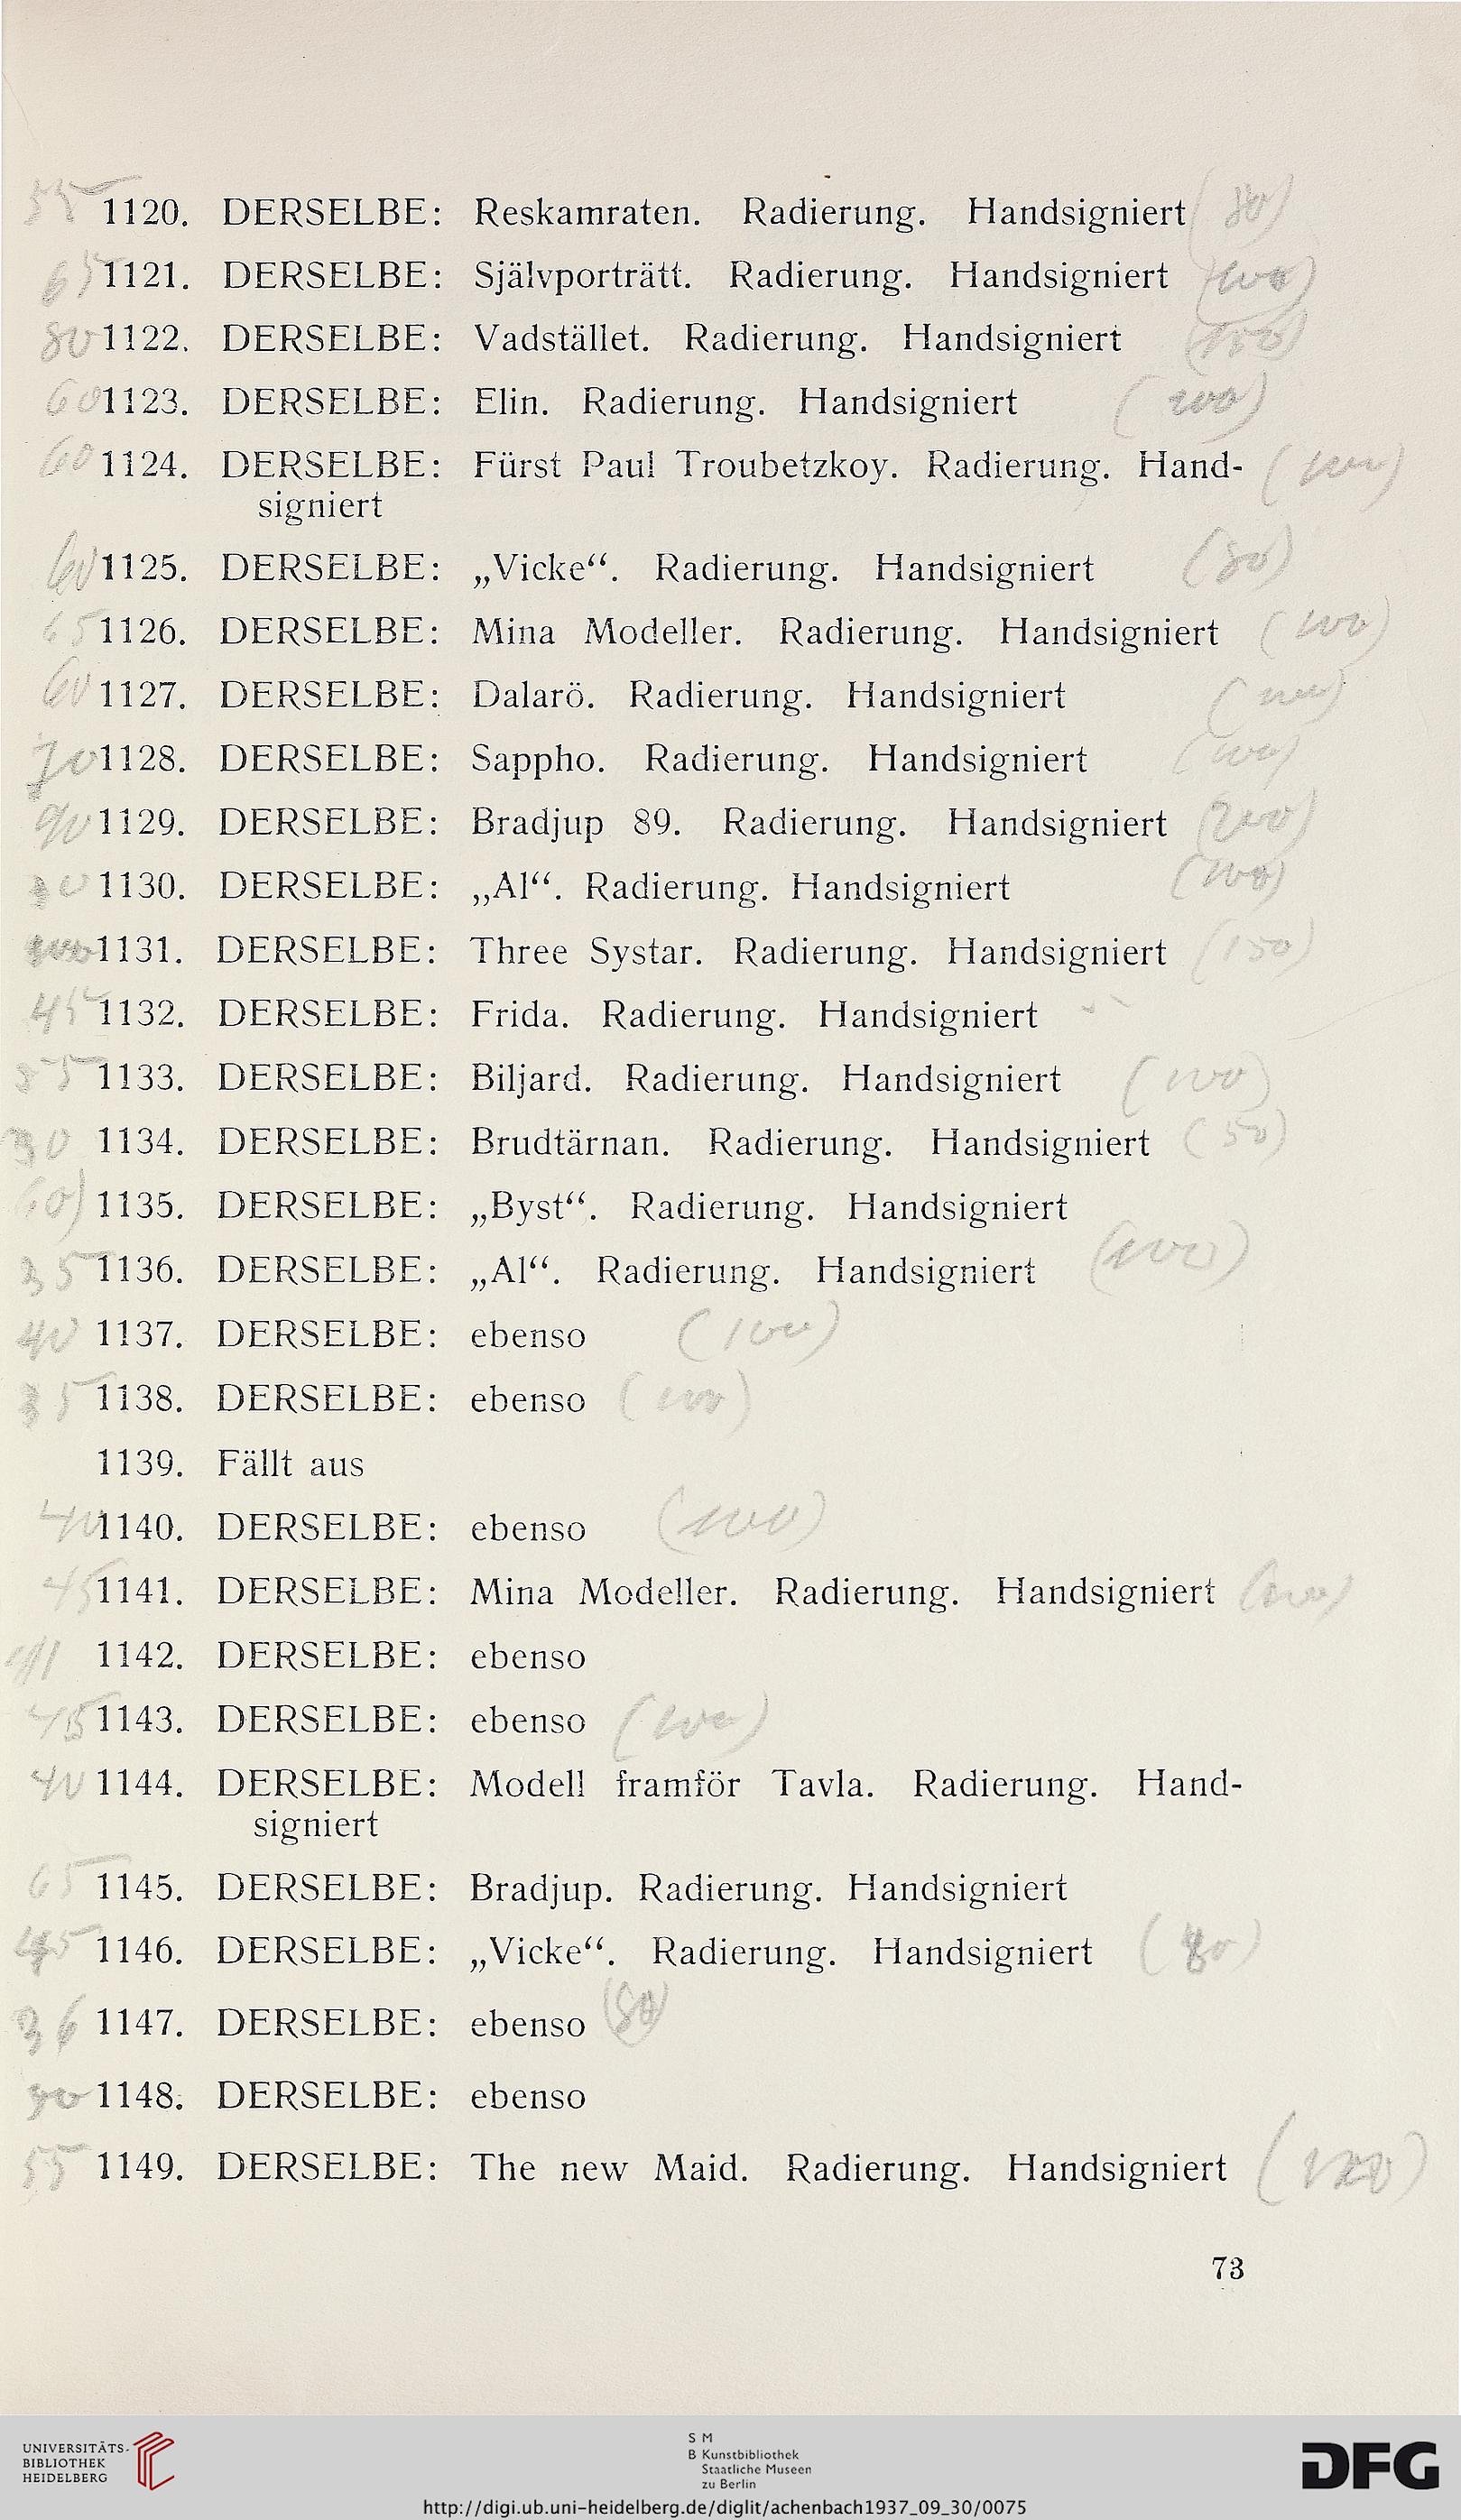 55 1120. DERSELBE: Reskamraten. Radierung. Handsigniert (80)
65 1121. DERSELBE: Självporträtt. Radierung. Handsigniert (100)
80 1122. DERSELBE: Vadstället. Radierung. Handsigniert (150)
60 1123. DERSELBE: Elin. Radierung. Handsigniert (200)
60 1124. DERSELBE: Fürst Paul Troubetzkoy. Radierung. Hand-
signiert
60 1125. DERSELBE: „Vicke“. Radierung. Handsigniert (80)
65 1126. DERSELBE: Mina Modeller. Radierung. Handsigniert (100)
60 1127. DERSELBE: Dalarö. Radierung. Handsigniert
70 1128. DERSELBE: Sappho. Radierung. Handsigniert (100)
90 1129. DERSELBE: Bradjup 89. Radierung. Handsigniert (200)
1130. DERSELBE: „Al“. Radierung. Handsigniert (100)
1131. DERSELBE: Three Systar. Radierung. Handsigniert (150)
45 1132. DERSELBE: Frida. Radierung. Handsigniert
55 1133. DERSELBE: Biljard. Radierung. Handsigniert (100)
30 1134. DERSELBE: Brudtärnan. Radierung. Handsigniert (50)
1135. DERSELBE: „Byst“. Radierung. Handsigniert
35 1136. DERSELBE: „Al“. Radierung. Handsigniert (100)
40 1137. DERSELBE: ebenso (100)
35 1138. DERSELBE: ebenso (100)
1139. Fällt aus
40 1140. DERSELBE: ebenso (100)
45 1141. DERSELBE: Mina Modeller. Radierung. Handsigniert (100)
1142. DERSELBE: ebenso
45 1143. DERSELBE: ebenso (100)
40 1144. DERSELBE: Modell framför Tavla. Radierung. Hand-
signiert
65 1145. DERSELBE: Bradjup. Radierung. Handsigniert
45 1146. DERSELBE: „Vicke“. Radierung. Handsigniert (80)
36 1147. DERSELBE: ebenso (80)
1148. DERSELBE: ebenso
55 1149. DERSELBE: The new Maid. Radierung. Handsigniert (120)
73
UNIVERSITÄTS-
BIBLIOTHEK
HEIDELBERG
S M
B Kunstbibliothek
Staatliche Museen
zu Berlin
DFG
http://digi.ub.uni-heidelberg.de/diglit/achenbach1937_09_30/0075